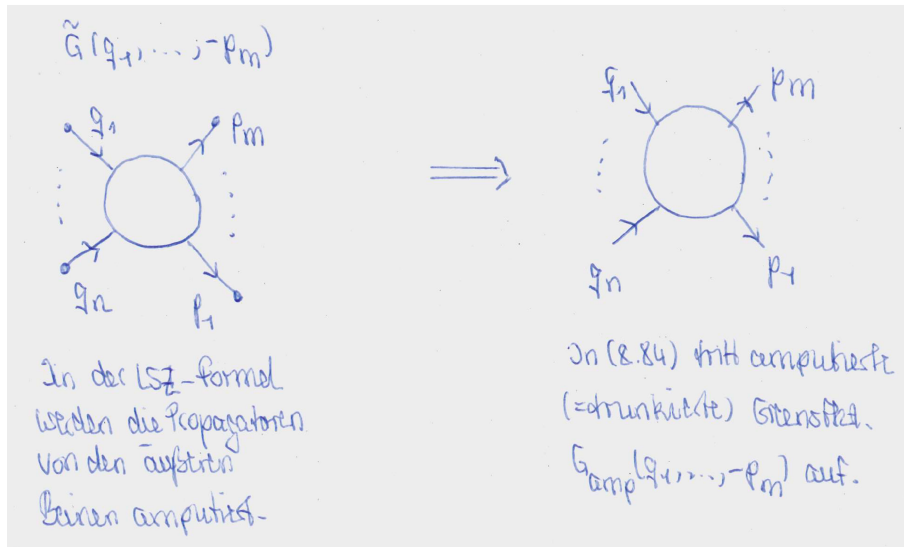 G̃(q₁, ..., -pₘ)
q₁
pₘ
qₙ
p₁
In der LSZ-Formel
werden die Propagatoren
von den äußeren
Beinen amputiert.
q₁
pₘ
qₙ
p₁
In (8.84) tritt amputierte
(=trunkierte) Greensfkt.
G_amp(q₁, ..., -pₘ) auf.